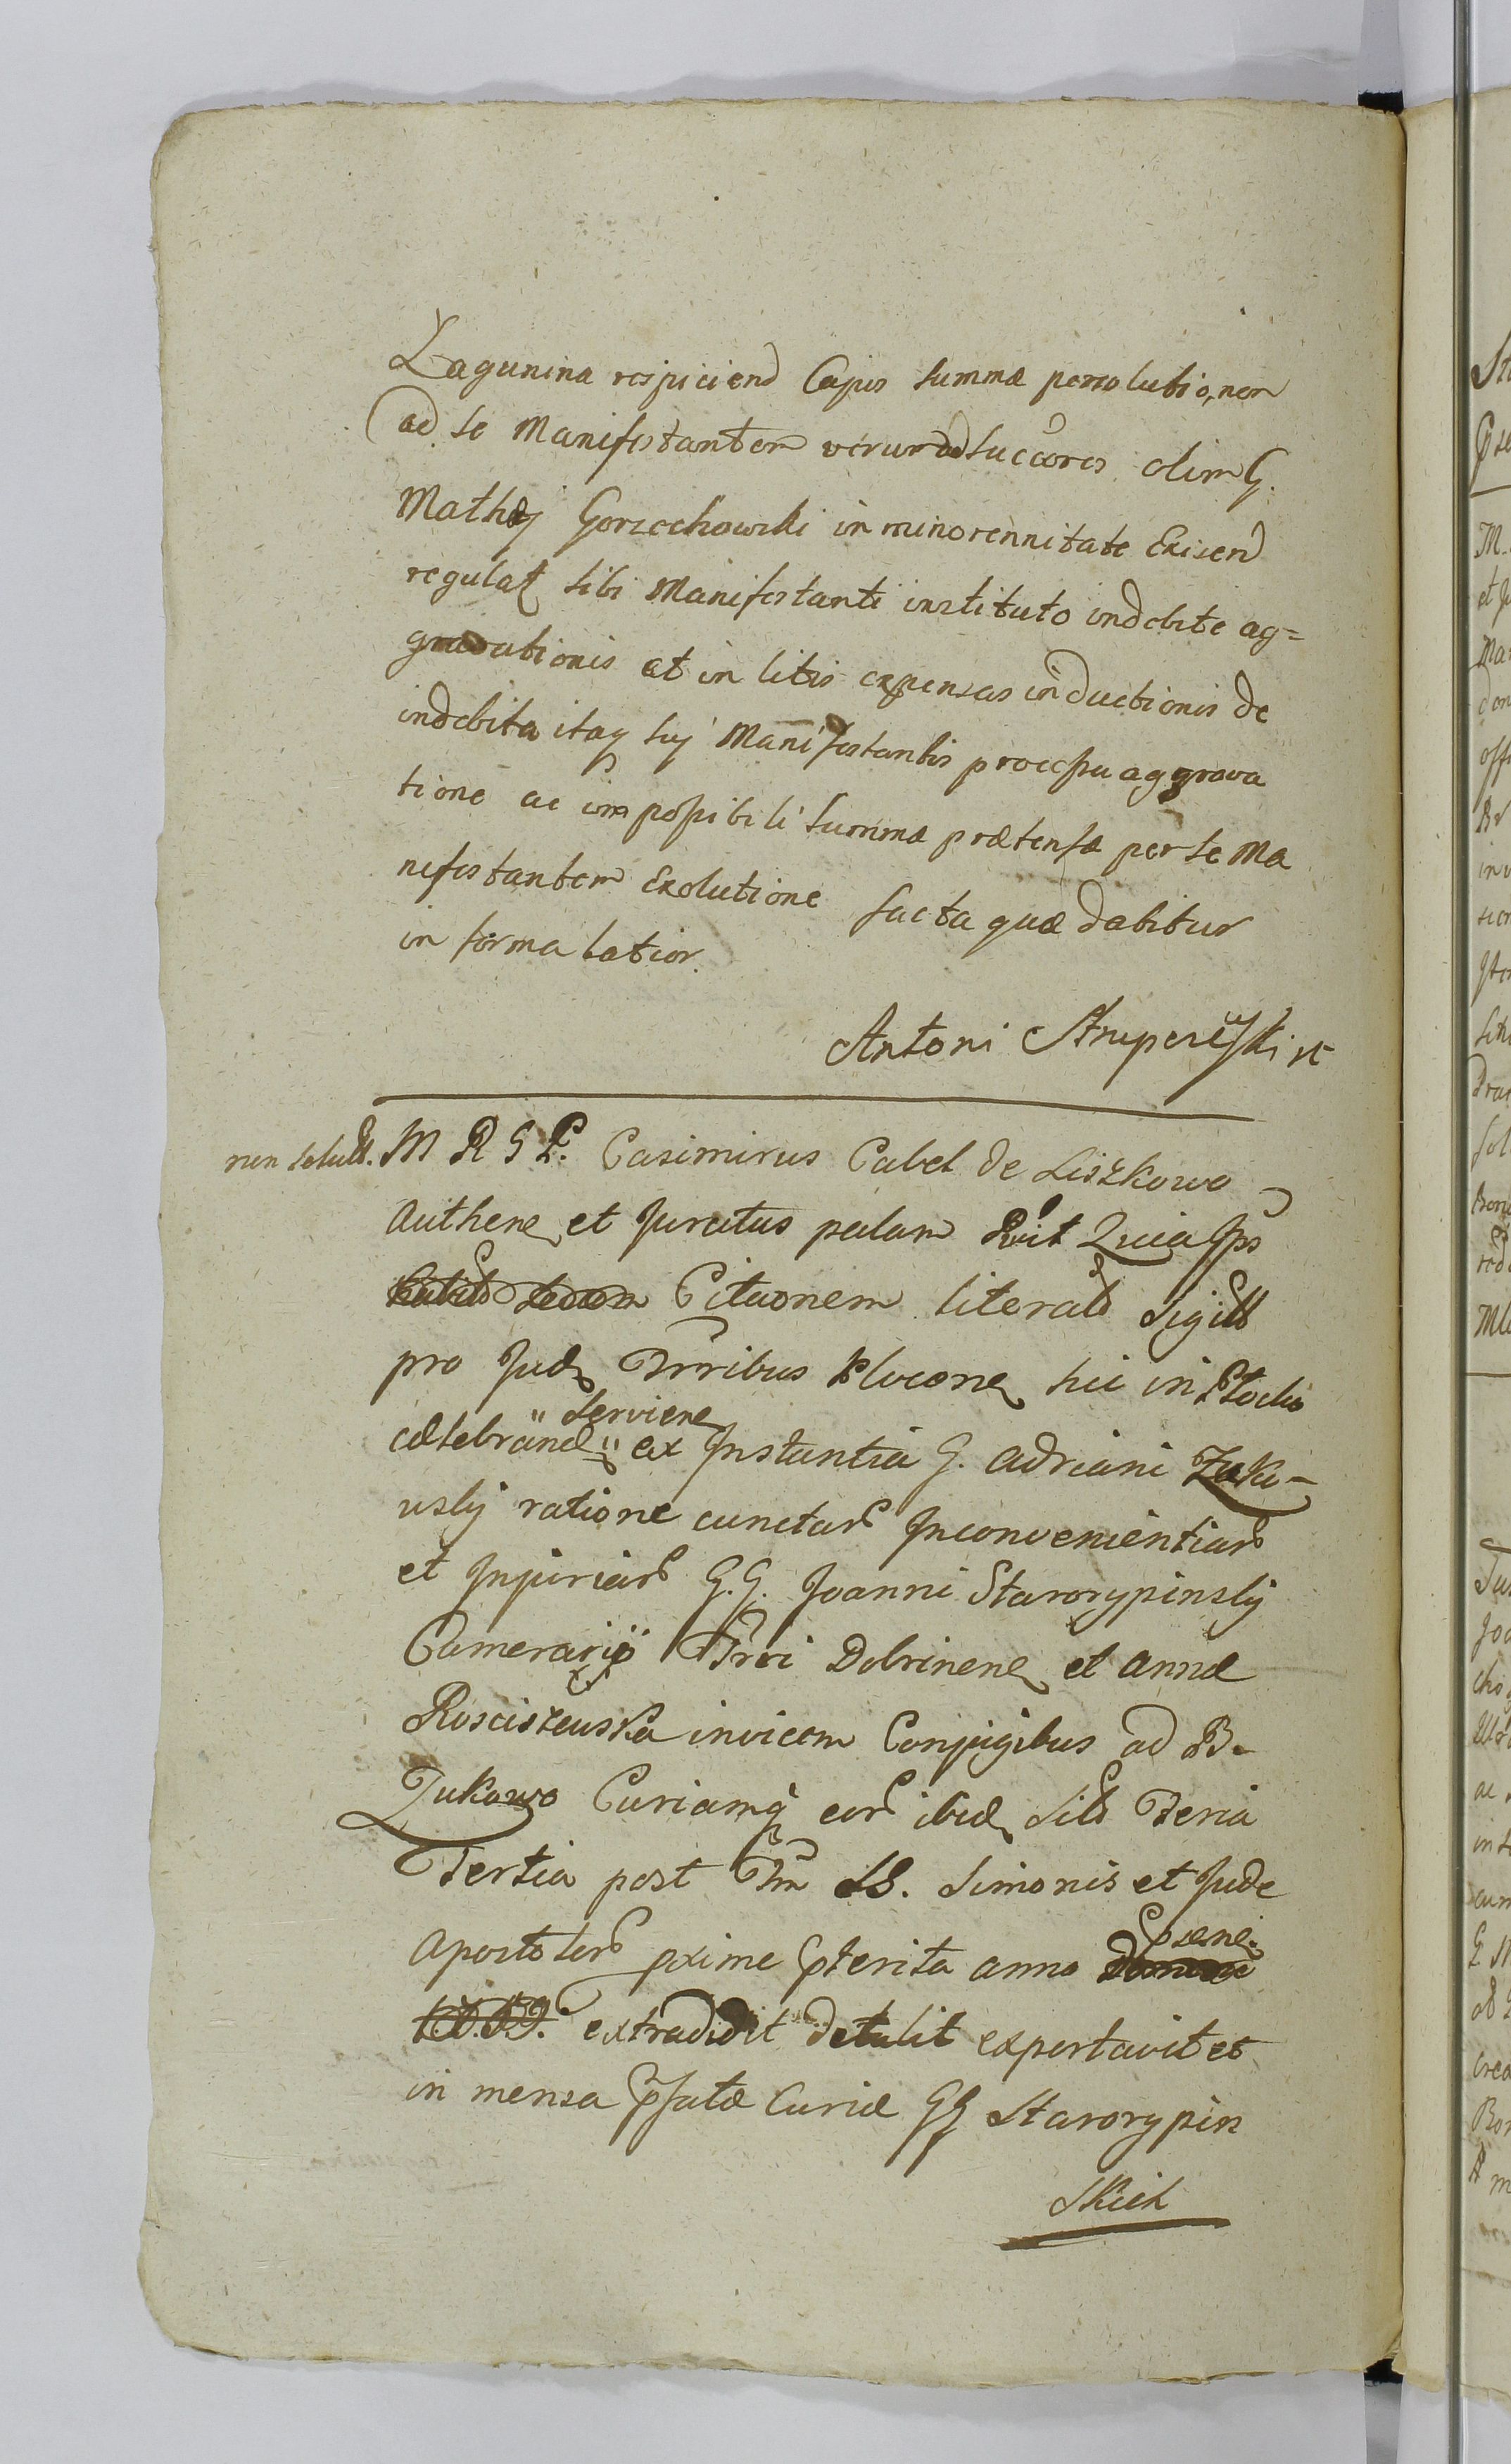 Lagunina respiciend Cujus summæ persolutio, non
ad se Manifestantem verum ad succores olim G.
Mathæj Gorzechowski in minorennitate Existend
regulat sibi Manifestanti instituto indebite ag=
gravationis et in litis expensas inductionis de
indebita itaq suj Manifestantis processu aggrava
tione ac impossibili summæ prætensæ per se Ma
nifestantem Exolutione facta quæ dabitur
in forma latior.
Antoni
non solut. M R G P. Casimirus Cabel de Liszkowo
Authen et Juratus palam Rvit Quia Ips
Citaonem literal Sigill
pro Jud Trribus Plocen hic in Plocko
celebrand " Servien " ex Instantia G. Adriani Zuko-
wskj ratione cunctar Inconvenientiar
et Injuriar G.G. Joanni Starorypinskj
Camerario Trri Dobrinen et Annæ
Rosciszewska invicem Conjugibus ad B.
Zukowo Curiamq eor ibid Sit Feria
Tertia post Ftm SS. Simonis et Jude
Apostolor pxime pterita anno psenti
extradidit detulit exportavit et
in mensa pfatæ Curiæ GG Starorypin
skich